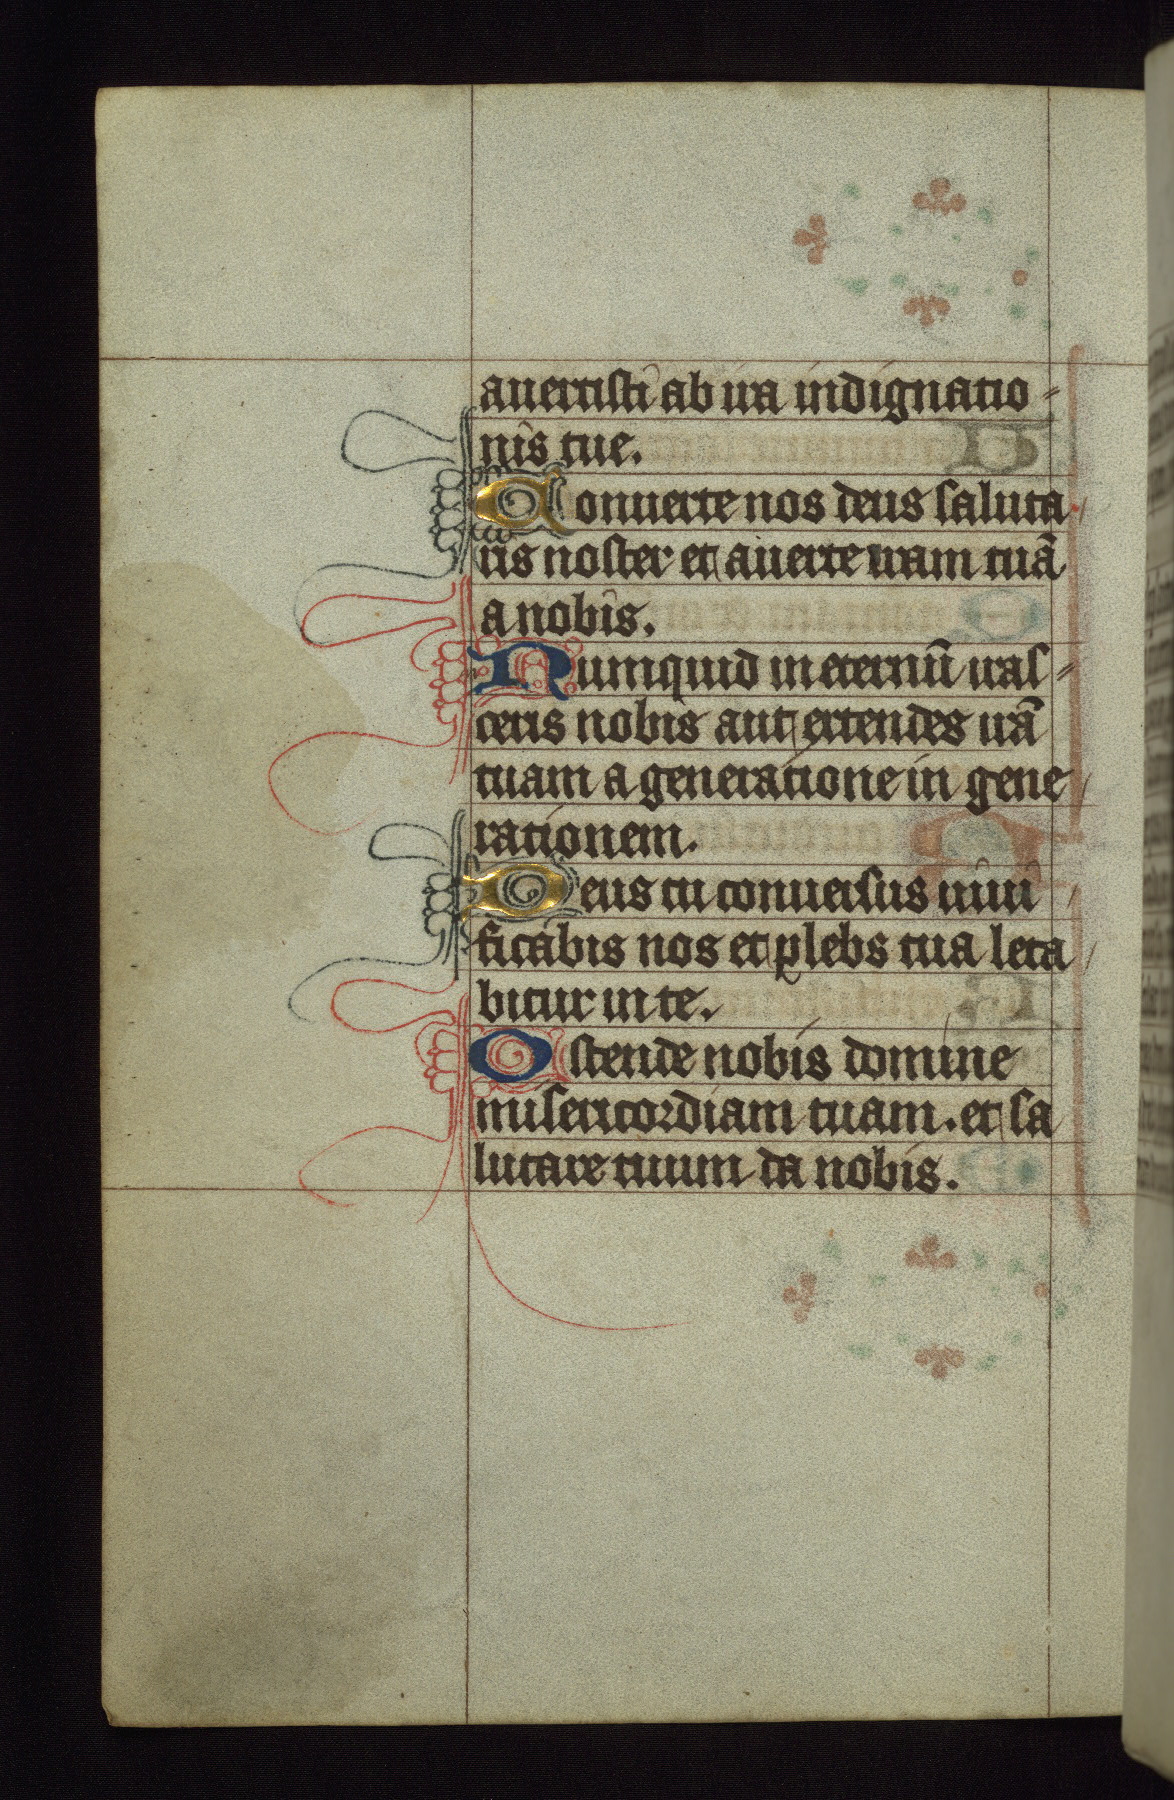 auertisti ab ira indignatio-
nis tue.
Conuerte nos deus saluta
ris noster et auerte iram tuā
a nobis.
Numquid in eternū iras-
ceris nobis aut extendes irā
tuam a generatione in gene
rationem.
Deus tu conuersus uiui
ficabis nos et plebs tua leta
bitur in te.
Ostende nobis domine
misericordiam tuam. et sa
lutare tuum da nobis.